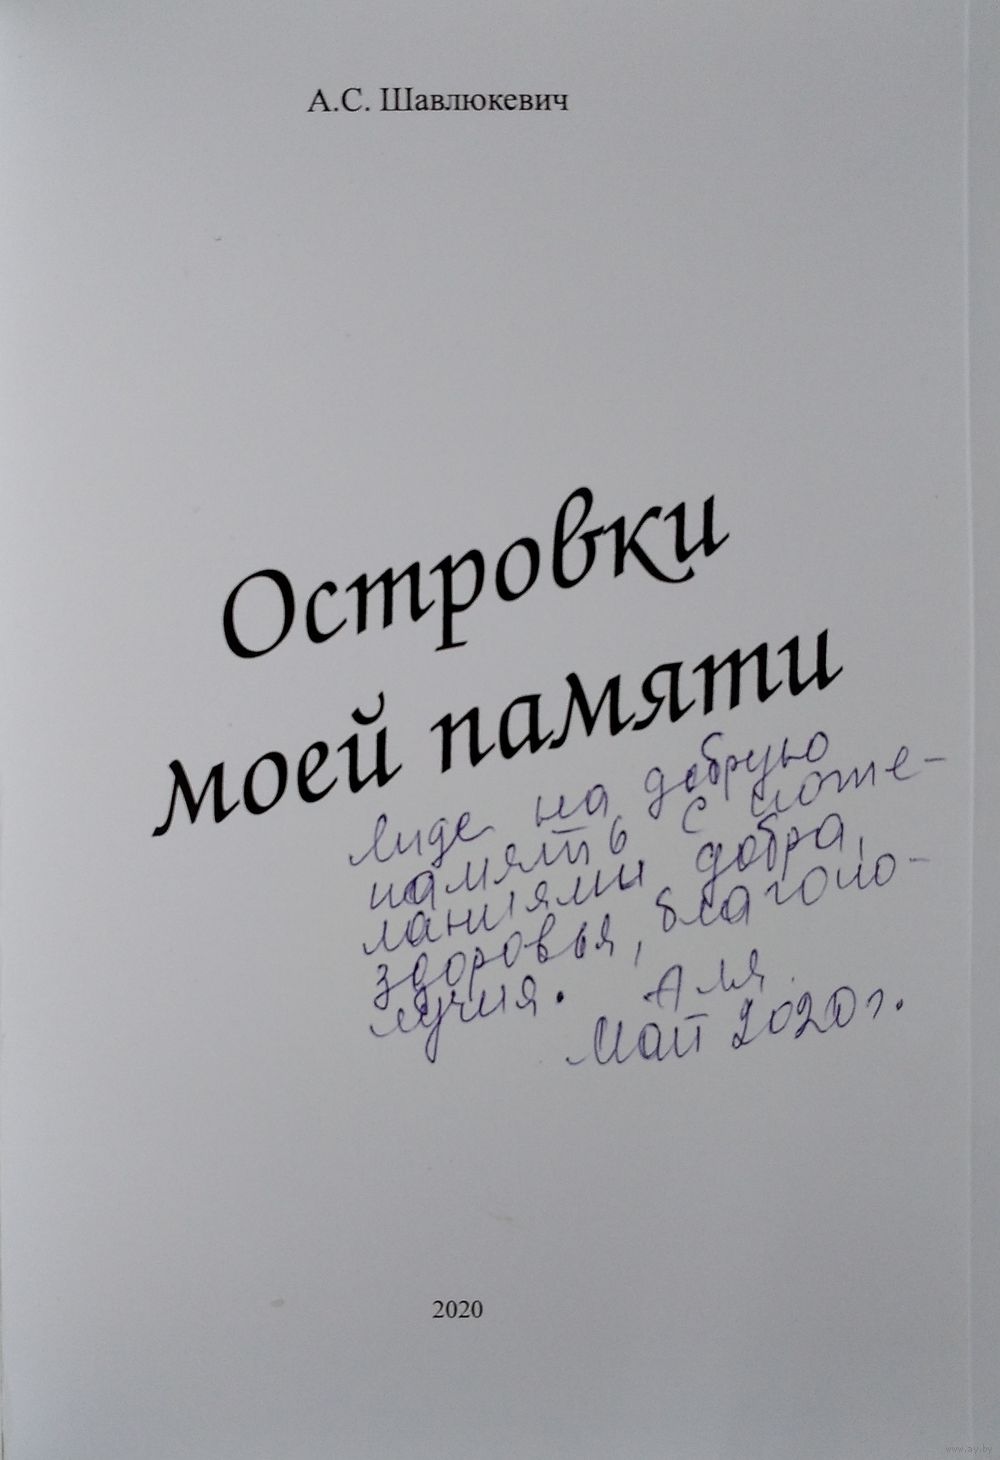 А.С. Шавлюкевич
Островки
моей памяти
Лиде на добрую
память с поже-
ланиями добра,
здоровья, благопо-
лучия. Аля.
Май 2020 г.
2020
www.ay.by